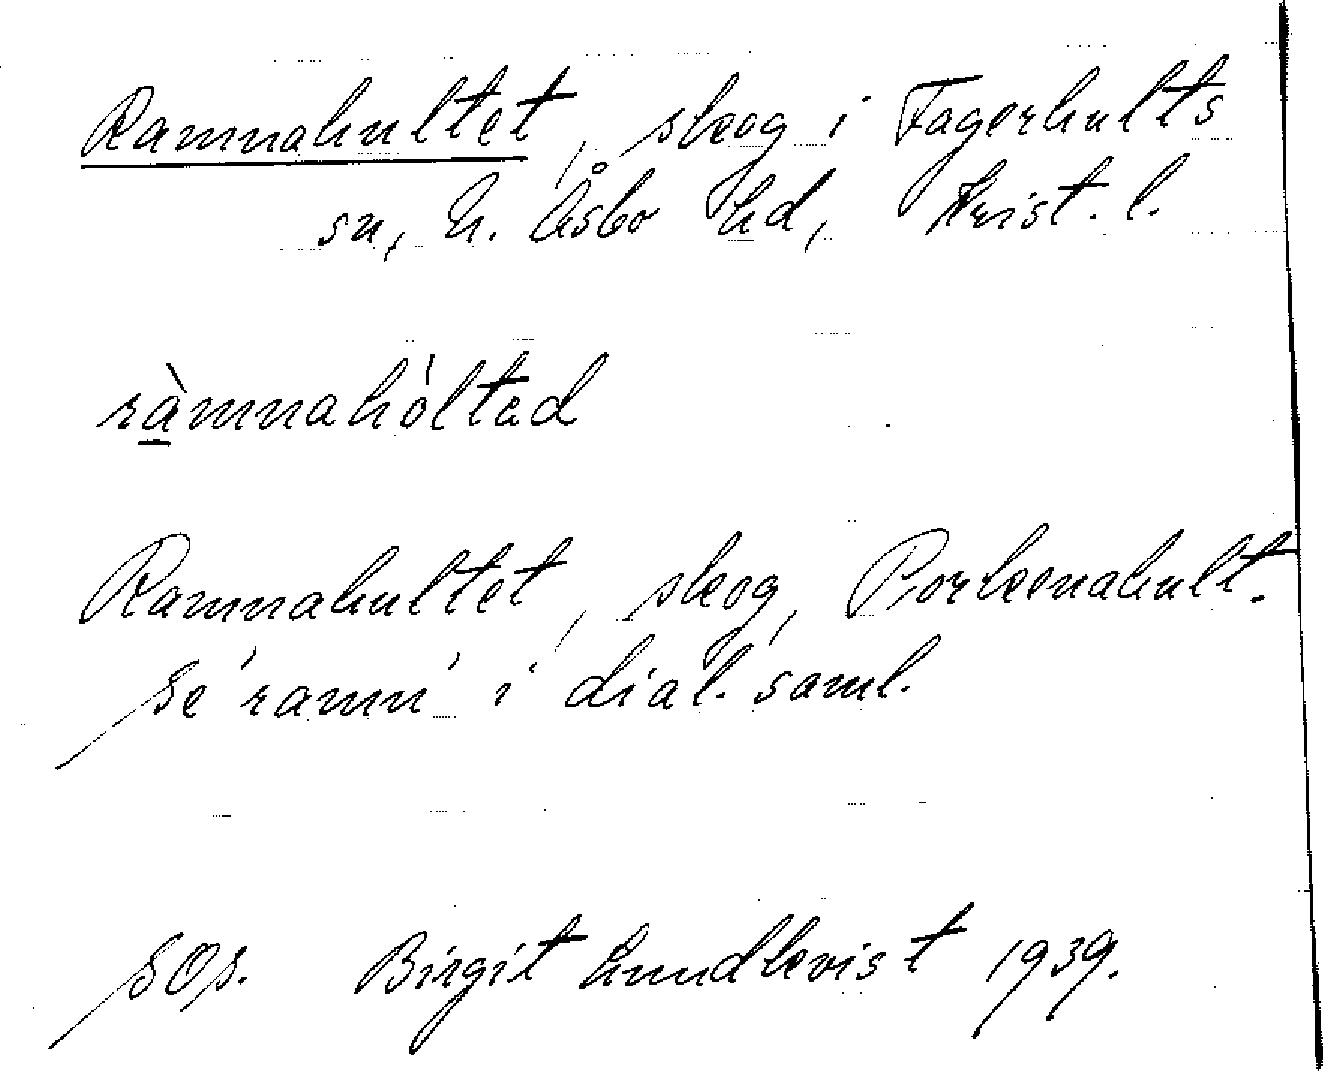 Ramnahultet, skog i Fagerhults
sn, N. Åsbo hd, Krist. l.
ràmnahóltad
Ramnahultet, skog, Porkenahult.
Se 'ramn' i dial. saml.
SOs. Birgit Lundkvist 1939.